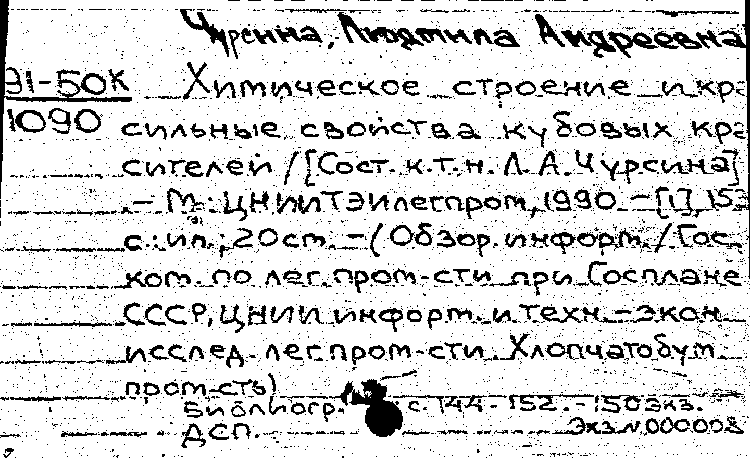 Чурсина, Людмила Андреевна
Э1-50К Химическое строение и кра
1090 сильные свойства кубовых кра
сителей / [Сост. к.т.н. Л. А. Чурсина]
. - М.: ЦНИИТЭИлегпром, 1990. - [1], 153
с.: ил.; 20 см. - (Обзор. информ. / Гос.
ком. по лег. пром-сти при Госплане
СССР, ЦНИИ информ. и техн. - экон.
исслед. лег. пром-сти. Хлопчатобум.
пром-сть)
Библиогр. с. 144 - 152. - 150 экз.
ДСП. Экз. N 000008